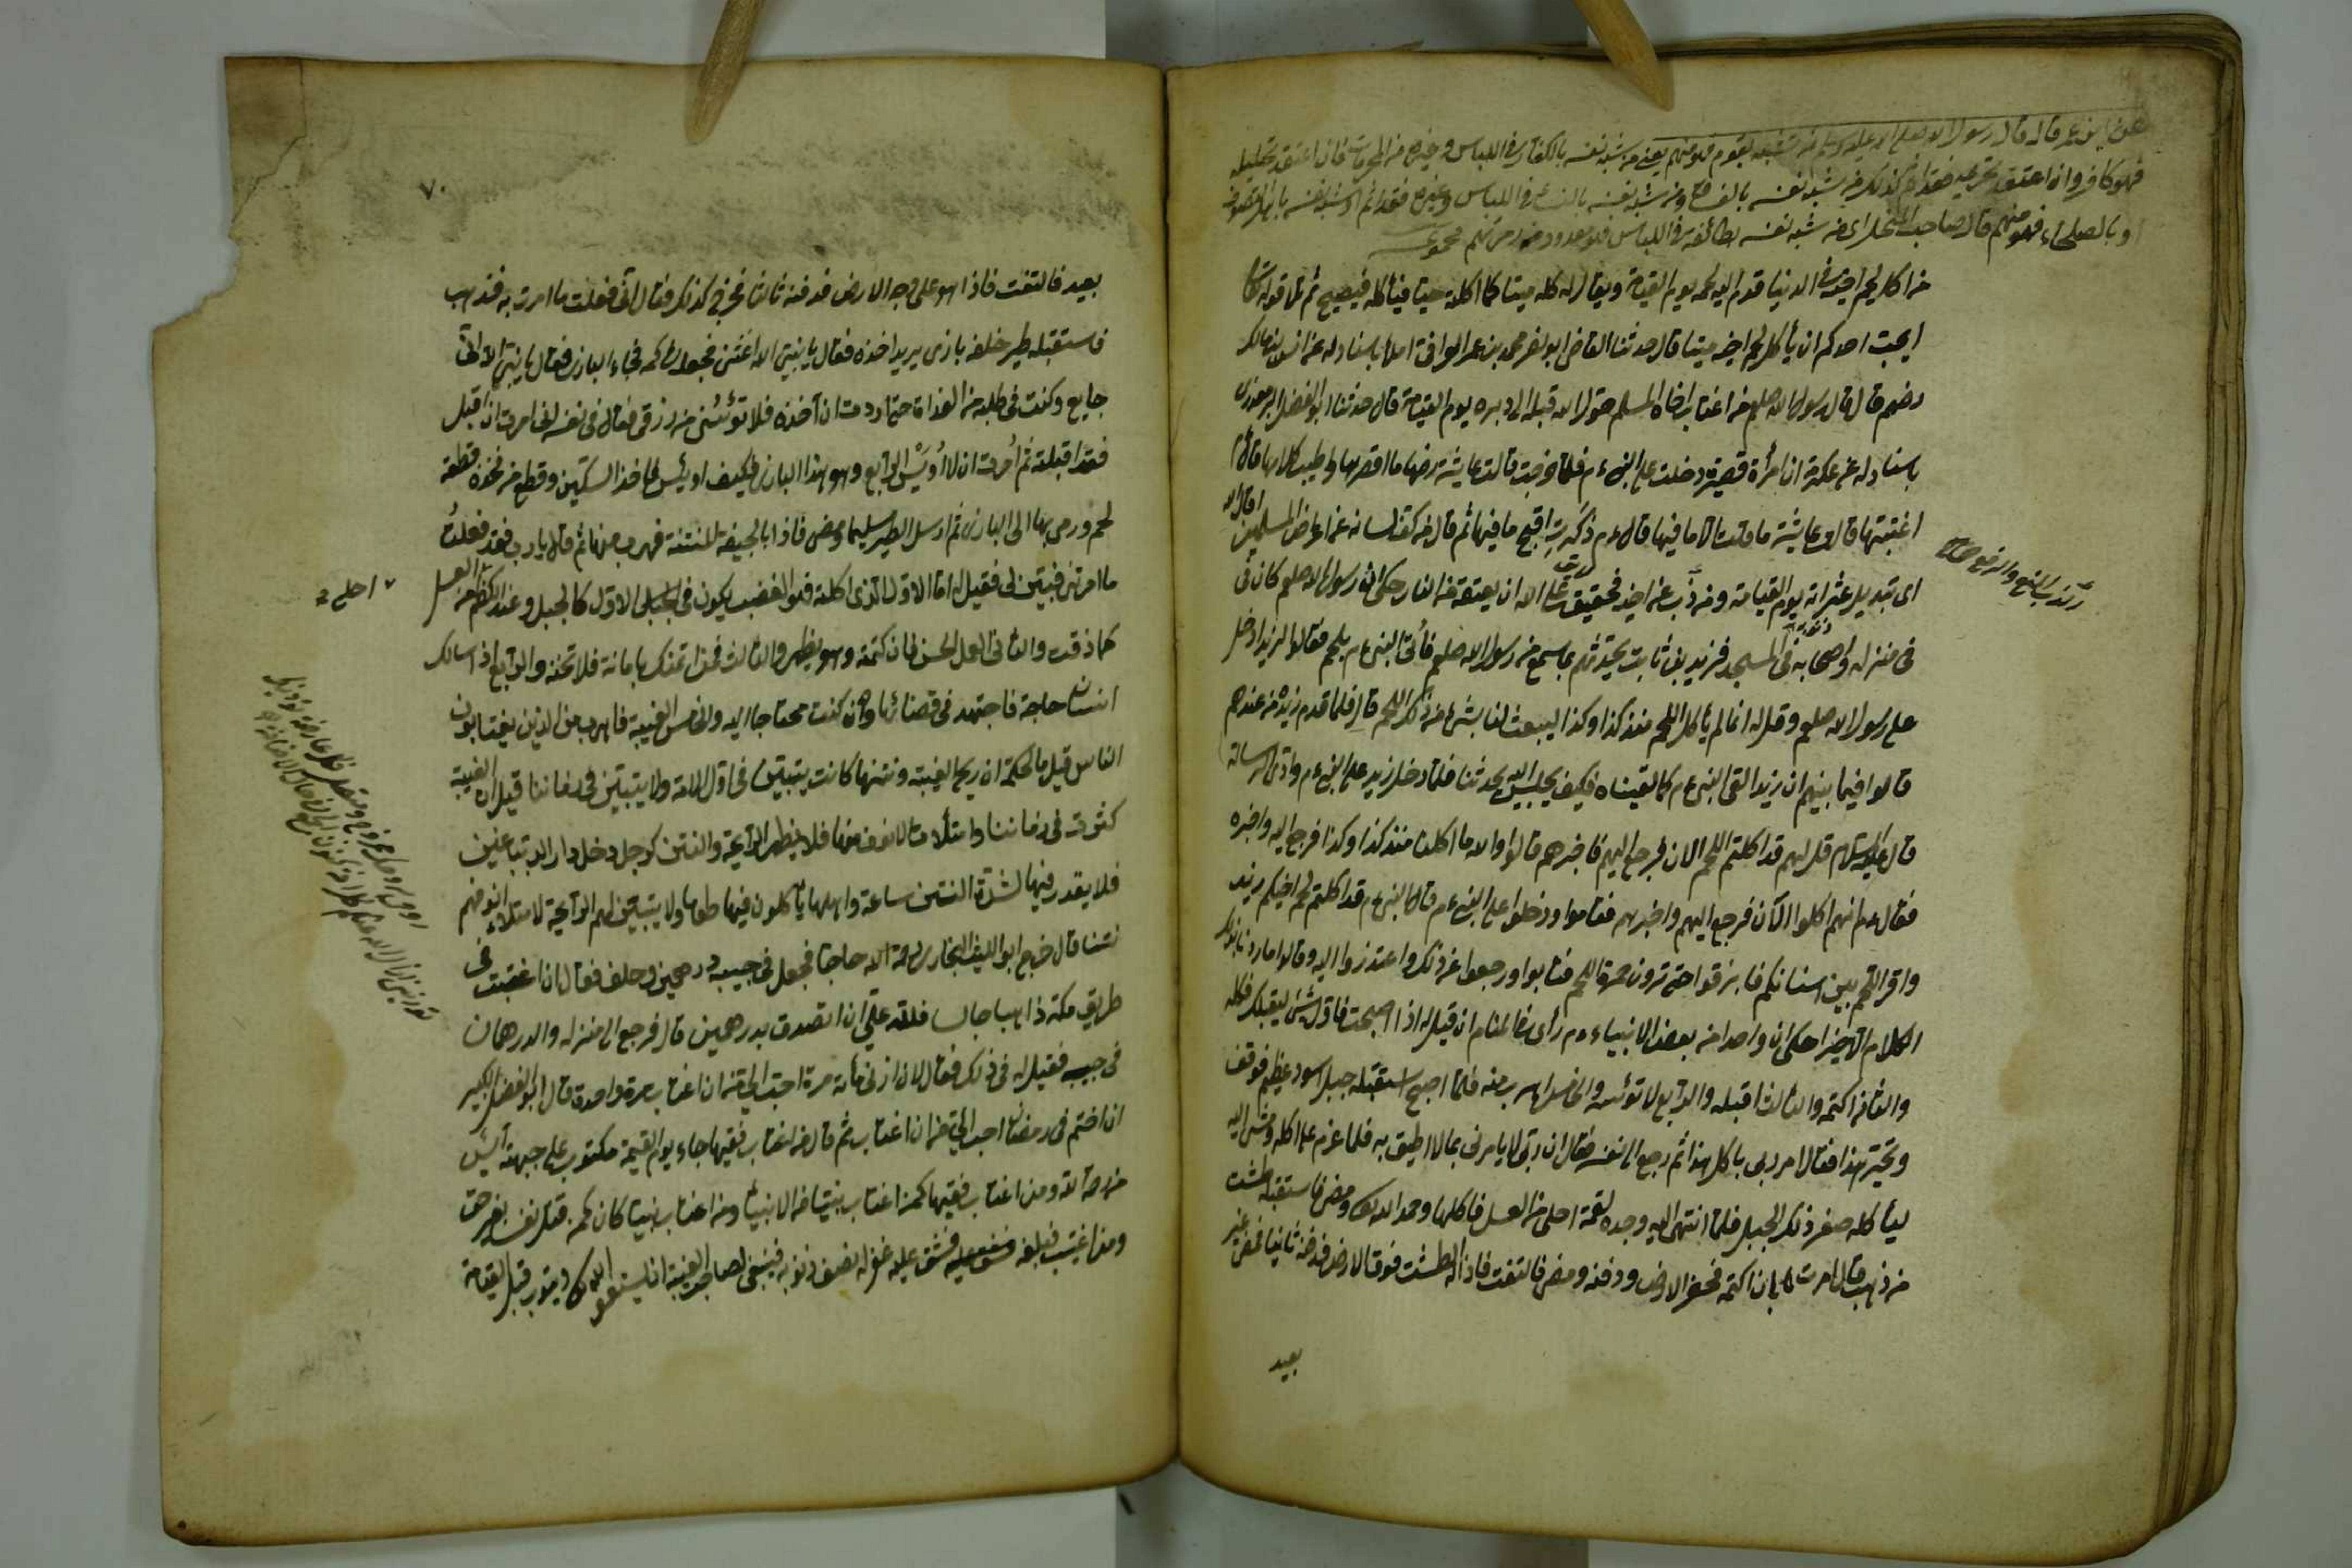 عن ابن عمر قال قال رسول الله صلى الله عليه وسلم من تشبه بقوم فهو منهم يعني من شبه نفسه بالكفار في اللباس وغيره من المحرمات فان اعتقد تحليله
فهو كافر وان اعتقد تحريمه فقد اثم كذلك من شبه نفسه بالفساق ومن شبه نفسه بالنساء في اللباس وغيره فقد اثم او شبه نفسه باهل التصوف
او بالصلحاء فهو منهم قال صاحب اى من شبه نفسه بطائفة في اللباس فهو معدود من
من اكل لحم اخيه في الدنيا قدم اليه لحمه يوم القيامة ويقال له كله ميتا كما اكلته حيا فيأكله فيصيح ثم تلا قوله تعا
ايحب احدكم ان يأكل لحم اخيه ميتا قال حدثنا القاضى ابو نصر محمد بن عمر املا باسناد له عن انس بن مالك
رضهم قال قال رسول الله صلعم من اغتاب اخاه المسلم حول الله قبله الى دبره يوم القيامة قال حدثنا ابو الفضل
باسناد له عن عكرمة ان امرأة قصيرة دخلت على النبى ءم فلما خرجت قالت عايشة رضها ما اقصرها وا طيب كلامها قال ءم
اغتبتها قالت عايشة ما قلت الا ما فيها قال ءم ذكرت اقبح ما فيها ثم قال من كف لسانه عن اعراض المسلمين اقال الله
اى تبديل عثراته يوم القيامة ومن ذب عن اخيه فحقيق على الله ان يعتقه من النار حكى ان رسول الله صلعم كان فى
فى منزله واصحابه فى المسجد فزيد بن ثابت يحدثهم بما سمع من رسول الله صلعم فأتى النبى ءم بلحم فقالوا لزيد ادخل
على رسول الله صلعم وقل له انا لم يأكل اللحم منذ كذا وكذا ليبعث لنا بشئ من ذلك اللحم قال فلما قدم زيد من عندهم
قالوا فيما بينهم ان زيدا لقى النبى ءم كما لقيناه فكيف يجلس اليه يحدثنا فلما دخل زيد على النبى ءم وادى الرسالة
قال عليه السلام قل لهم قد اكلتم اللحم الان فرجع اليهم فاخبرهم قالوا والله ما اكلنا منذ كذا وكذا فرجع اليه واخبره
فقال ءم انهم اكلوا الآن فرجع اليهم واخبرهم فقاموا ودخلوا على النبى ءم فقال النبى ءم قد اكلتم لحم اخيكم زيد
واثر اللحم بين اسنانكم فابزقوا حتى ترون حمرة اللحم فتابوا ورجعوا عن ذلك واعتذروا اليه وقالوا ما اردنا بذلك
الكلام الا خيرا حكى ان واحدا من بعض الانبياء ءم رأى فى المنام ان قيل له اذا اصبحت فاول شئ يستقبلك فكله
والثانى اكتمه والثالث اقبله والرابع لا تؤيسه والخامس اهرب منه فلما اصبح استقبله جبل اسود عظيم فوقف
وتحير بهذا فقال امر ربى باكل هذا ثم رجع الى نفسه فقال ان ربى لا يأمرنى بما لا اطيق به فلما عزم على اكله ومشى اليه
ليأكله صغر ذلك الجبل فلما انتهى اليه وجده لقمة احلى من العسل فاكلها وحمد الله تعالى ومضى فاستقبله طشت
من ذهب قال امرت بان اكتمه فحفر الارض ودفنه ومضى فالتفت فاذا الطشت فوق الارض فدفنه ثانيا فمضى غير
بعيد
٧٠
بعيد فالتفت فاذا هو على وجه الارض فدفنه ثالثا فخرج كذلك فقال انى فعلت ما امرت به فذهب
فاستقبله طير خلفه بازى يريد اخذه فقال يا نبى الله اغثنى فجعله فى كمه فجاء البازى فقال يا نبى الله انى
جايع وكنت فى طلبه من الغداة حتى اردت ان آخذه فلا تؤيسنى من رزقى فقال فى نفسه انى امرت ان اقبل
فقد اقبلته ثم أمرت ان لا أويس الرابع وهو هذا البازى فكيف اويس فاخذ السكين وقطع من فخذه قطعة
لحم ورمى بها الى البازى ثم ارسل الطير سليما ومضى فاذا بالجيفة المنتنة فهرب منها ثم قال يا رب فقد فعلت
ما امرتنى فبين لى فقيل اما الاول الذى اكلته فهو الغضب يكون فى الاول كالجبل وعند الكظم من العسل
كما ذقت والثانى العمل الحسن فان كتمته وهو يظهر والثالث فمن ائتمنك بامانة فلا تخنه والرابع اذا سالك
انسان حاجة فاجتهد فى قضائها وان كنت محتاجا اليه والخامس الغيبة فاهرب من الذين يغتابون
الناس قيل ما الحكمة ان ريح الغيبة ونتنها كانت يتبين فى اول الامة ولا يتبين فى زماننا قيل ان الغيبة
كثرت فى زماننا وامتلأت الانوف منها فلا يظهر الرائحة والنتن كرجل دخل دار الدباغين
فلا يقدر فيها لشدة النتن ساعة واهلها يأكلون فيها طعاما ولا يتبين لهم الرائحة لامتلاء انوفهم
نتنا قال خرج ابو الليث البخارى رحمة الله حاجا فجعل فى جيبه درهمين وحلف فقال ان اغتبت فى
طريق مكة ذاهبا جائيا فلله على ان اتصدق بدرهمين قال فرجع الى منزله والدرهمان
فى جيبه فقيل له فى ذلك فقال لان ازنى مأة مرة احب الى من ان اغتاب مرة واحدة قال ابو الفضل الكبير
ان اختم فى رمضان احب الى من ان اغتاب ثم قال من اغتاب فقيها جاء يوم القيمة مكتوب على جبهته آيس
من رحمة الله ومن اغتاب فقيها كمن اغتاب نبيا من الانبياء ومن اغتاب نبيا كان كمن قتل نفسا بغير حق
ومن اغتيب فبلغه فشق عليه غفر له نصف ذنوبه فينبغى لصاحب الغيبة ان يستغفر الله تعالى ويتوب قبل القيامة
احلى